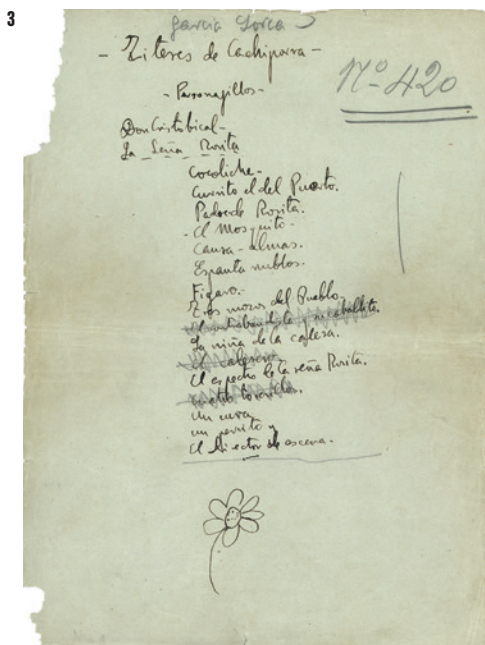 3
García Lorca
- Títeres de Cachiporra -
Nº 420
- Personajillos -
Don Cristobical -
La Seña Rosita
Cocoliche -
Currito el del Puerto.
Padre de Rosita.
- El Mosquito -
Cansa-Almas.
Espanta nublos.
Fígaro.-
Los mozos del Pueblo.
El contrabandista y su caballito.
La niña de la calesa.
El calesero
El espectro de la seña Rosita.
cuatro
Un cura,
un perrito y
El Director de escena.